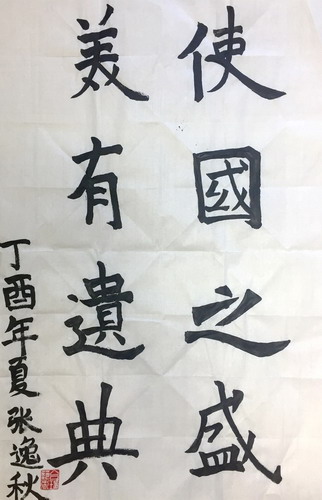 使國之盛
美有遺典
丁酉年夏张逸秋